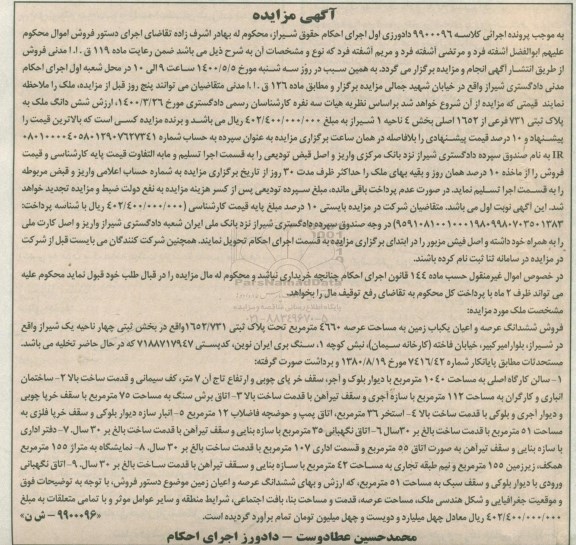 آگهی مزایده
به موجب پرونده اجرائی کلاسه ۹۹۰۰۰۹۶ دادورزی اول اجرای احکام حقوق شیراز، محکوم له بهادر اشرف زاده تقاضای اجرای دستور فروش اموال محکوم
علیهم ابوالفضل آشفته فرد و مرتضی آشفته فرد و مریم آشفته فرد که نوع و مشخصات آن به شرح ذیل می باشد ضمن رعایت ماده ۱۱۹ ق.ا.ا مدنی فروش
از طریق انتشار آگهی انجام و مزایده برگزار می گردد. به همین سبب در روز سه شنبه مورخ ۱۴۰۰/۵/۵ ساعت ۹ الی ۱۰ در محل شعبه اول اجرای احکام
مدنی دادگستری شیراز واقع در خیابان شهید جمالی مزایده برگزار و مطابق ماده ۱۲۶ ق.ا.ا مدنی متقاضیان می توانند پنج روز قبل از مزایده، ملک را ملاحظه
نمایند قیمتی که مزایده از آن شروع خواهد شد براساس نظریه هیات سه نفره کارشناسان رسمی دادگستری مورخ ۱۴۰۰/۳/۲۶، ارزش شش دانگ ملک به
پلاک ثبتی ۷۳۱ فرعی از ۱۶۵۲ اصلی بخش ۴ ناحیه ۱ شیراز به مبلغ ۴۰۲/۴۰۰/۰۰۰/۰۰۰ ریال می باشد و برنده مزایده کسی است که بالاترین قیمت را
پیشنهاد و ۱۰ درصد قیمت پیشنهادی را بلافاصله در همان ساعت برگزاری مزایده به عنوان سپرده به حساب شماره
IR به نام صندوق سپرده دادگستری شیراز نزد بانک مرکزی واریز و اصل قبض تودیعی را به قسمت اجرا تسلیم و مابه التفاوت قیمت پایه کارشناسی و قیمت
فروش را از ماخذه ۱۰ درصد همان روز و بقیه بهای ملک را حداکثر ظرف مدت ۳۰ روز از تاریخ برگزاری مزایده به شماره حساب اعلامی واریز و قبض مربوطه
را به قسمت اجرا تسلیم نماید. در صورت عدم پرداخت باقی مانده، مبلغ سپرده تودیعی پس از کسر هزینه مزایده به نفع دولت ضبط و مزایده تجدید خواهد
شد. این آگهی نوبت اول می باشد. متقاضیان شرکت در مزایده بایستی ۱۰ درصد مبلغ پایه قیمت کارشناسی (۴۰۲/۴۰۰/۰۰۰/۰۰۰ ریال با شناسه پرداخت:
در وجه صندوق سپرده دادگستری شیراز نزد بانک ملی ایران شعبه دادگستری شیراز واریز و اصل کارت ملی
را به همراه خود داشته و اصل فیش مزبور را در ابتدای برگزاری مزایده به قسمت اجرای احکام تحویل نمایند. همچنین شرکت کنندگان می بایست قبل از شرکت
در مزایده در سامانه ثنا ثبت نام کرده باشند.
در خصوص اموال غیرمنقول حسب ماده ۱۴۴ قانون اجرای احکام چنانچه خریداری نباشد و محکوم له مال مزایده را در قبال طلب خود قبول نماید محکوم علیه
می تواند ظرف ۲ ماه با پرداخت کل محکوم به تقاضای رفع توقیف مال را بخواهد.
مشخصت ملک مورد مزایده:
فروش ششدانگ عرصه و اعیان یکباب زمین به مساحت عرصه ۴۶۶۰ مترمربع تحت پلاک ثبتی ۱۶۵۲/۷۳۱ واقع در بخش ثبتی چهار ناحیه یک شیراز واقع
در شیراز، بلوار امیرکبیر، خیابان فاخته (کارخانه سیمان)، نبش کوچه ۱، سنگ بری ایران نوین، کدپستی ۷۱۸۸۷۱۷۹۴۷ که در حال حاضر تخلیه می باشد.
مستحدثات مطابق پایانکار شماره ۷۴۱۶/۴۲ مورخ ۱۳۸۰/۸/۱۹ و برداشت صورت گرفته:
۱- سالن کارگاه اصلی به مساحت ۱۰۴۰ مترمربع با دیوار بلوک و آجر، سقف خر پای چوبی و ارتفاع تاج آن ۷ متر، کف سیمانی و قدمت ساخت بالا ۲- ساختمان
انباری و کارگران به مساحت ۱۱۲ مترمربع با سازه آجری و سقف تیرآهن با قدمت ساخت بالا ۳- اتاق برش سنگ به مساحت ۷۵ مترمربع با سقف خرپا چوبی
و دیوار آجری و بلوکی با قدمت ساخت بالا ۴- استخر ۳۶ مترمربع، اتاق پمپ و حوضچه فاضلاب ۱۲ مترمربع ۵- انبار سازه دیوار بلوکی و سقف خرپا فلزی به
مساحت ۵۱ مترمربع با قدمت ساخت بالغ بر ۳۰ سال ۶- اتاق نگهبانی ۳۵ مترمربع با سازه بنایی و سقف تیرآهن با قدمت ساخت بالغ بر ۳۰ سال. ۷- دفتر اداری
با سازه بنایی و سقف تیرآهن به صورت اتاق ۵۵ مترمربع و قسمت اداری ۱۰۷ مترمربع با قدمت ساخت بالغ بر ۳۰ سال. ۸- نمایشگاه به متراژ ۱۵۵ مترمربع
همکف، زیرزمین ۱۵۵ مترمربع و نیم طبقه تجاری به مساحت ۴۲ مترمربع با سازه بنایی و سقف تیرآهن با قدمت ساخت بالغ بر ۳۰ سال. ۹- اتاق نگهبانی
ورودی با دیوار بلوکی و سقف سبک به مساحت ۵۱ مترمربع، که ارزش و بهای ششدانگ عرصه و اعیان زمین موضوع دستور فروش، با توجه به توضیحات فوق
و موقعیت جغرافیایی و شکل هندسی ملک، مساحت عرصه، قدمت و مساحت بنا، بافت اجتماعی، شرایط منطقه و سایر عوامل موثر و با تمامی متعلقات به مبلغ
۴۰۲/۴۰۰/۰۰۰/۰۰۰ ریال معادل چهل میلیارد و دویست و چهل میلیون تومان تمام برآورد گردیده است.
«۹۹۰۰۰۹۶ - ش ن»
محمدحسین عطادوست - دادورز اجرای احکام